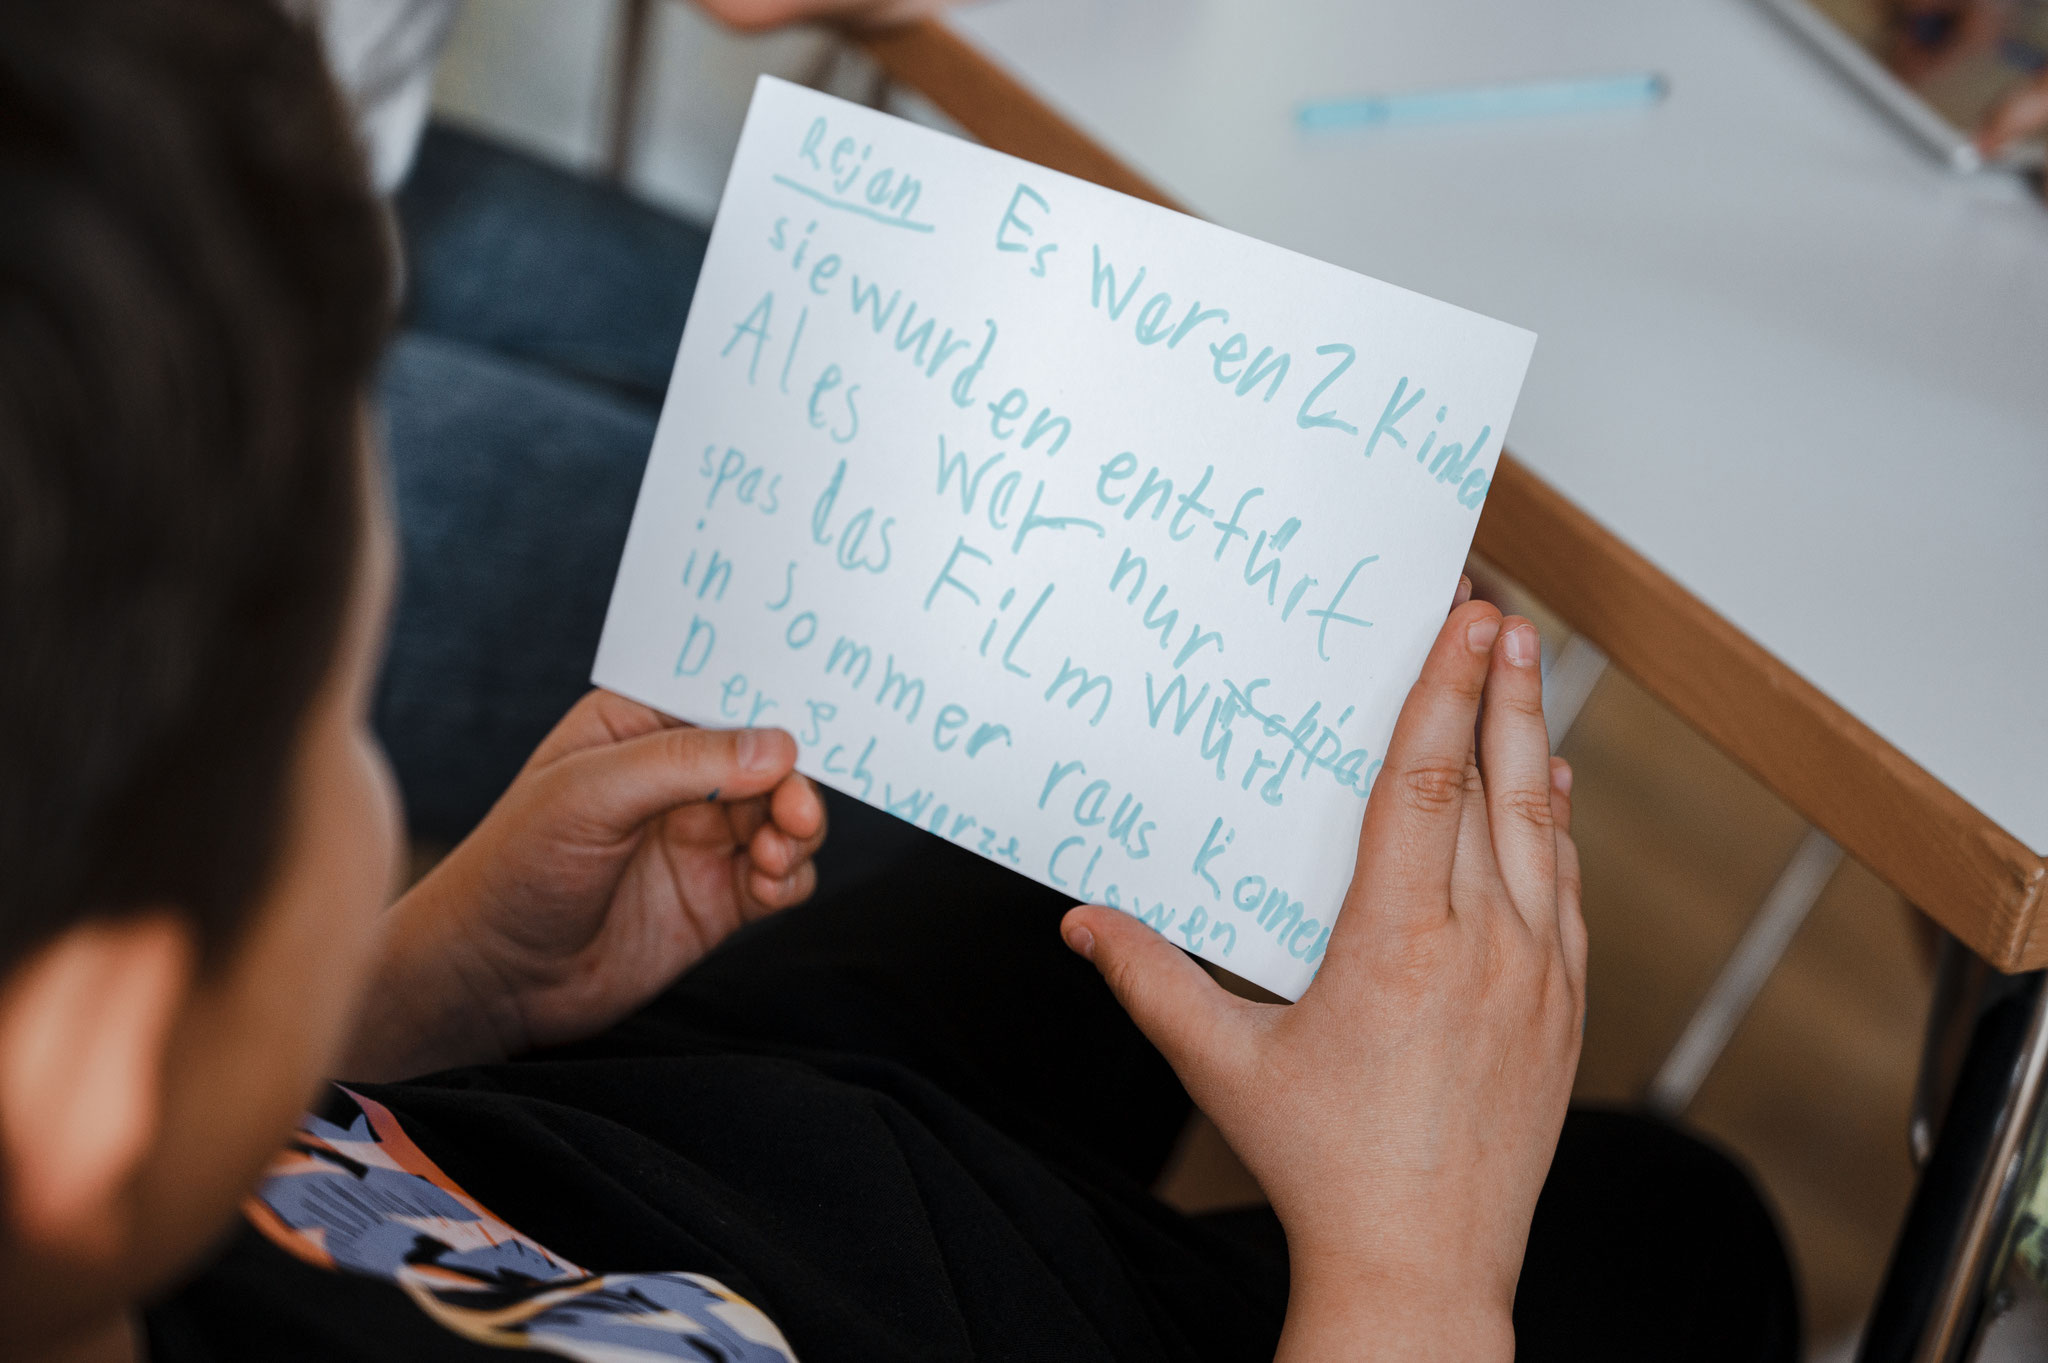 Rejan Es waren 2 Kinder
sie wurden entfürt
Ales war nur
spas das FiLm würd
in sommer raus komen
Der schwarze Clowen